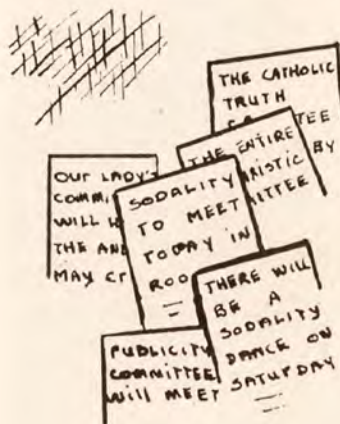 THE CATHOLIC
TRUTH
TEE
THE ENTIRE
ARISTIC BY
ITTEE
OUR LADY'S
COMM
WILL
THE AN
MAY C
SODALITY
TO MEET
TODAY IN
ROO
THERE WILL
BE A
SODALITY
DANCE ON
SATURDAY
PUBLICITY
COMMITTEE
WILL MEET